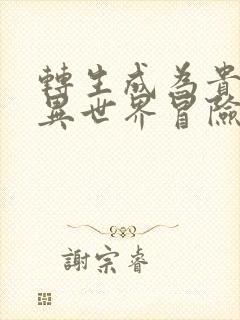 轉生成為貴
異世界冒險
謝宗睿